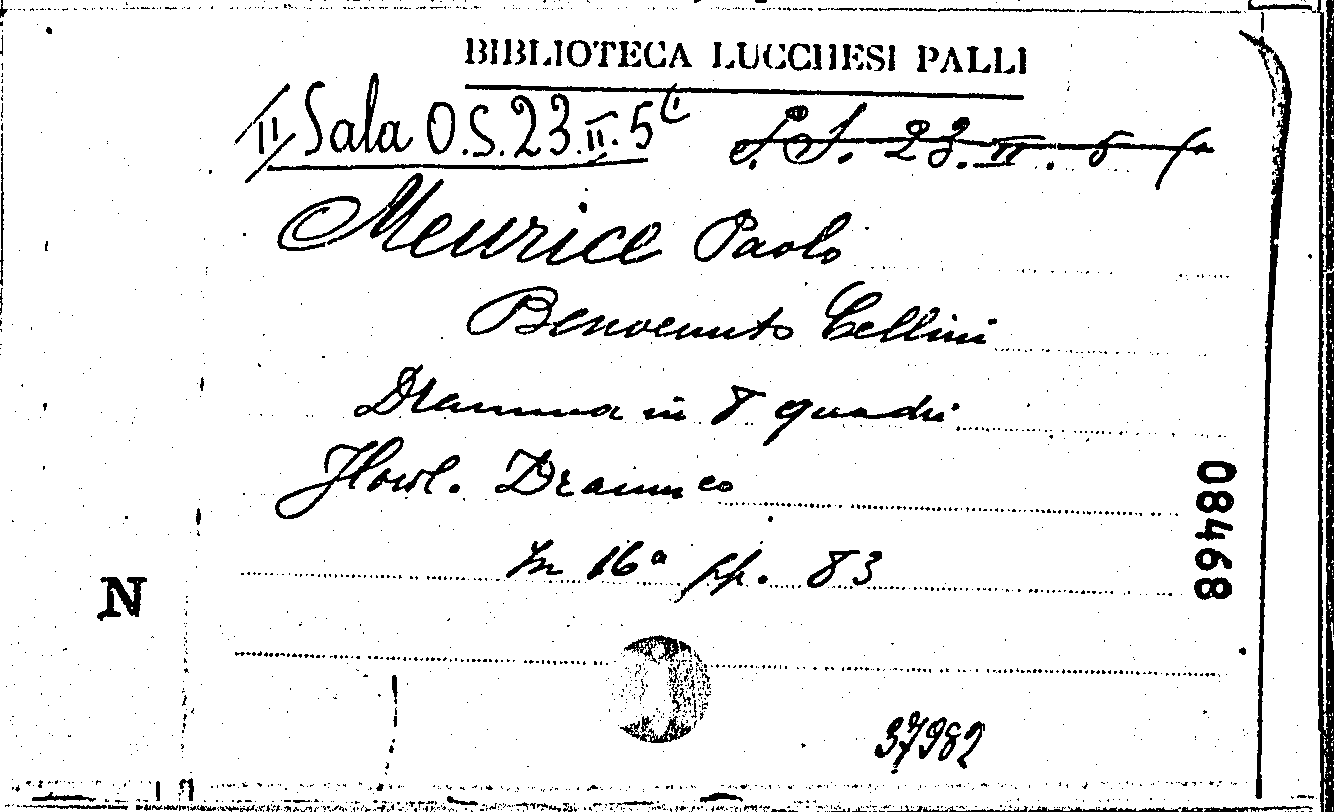 BIBLIOTECA LUCCHESI PALLI
II Sala O.S.23.II.5
S. S. 23. II. 5
Meurice Paolo
Benvenuto Cellini
Dramma in 8 quadri
Floril. Dramm co
In 16º pp. 83
08468
N
37982